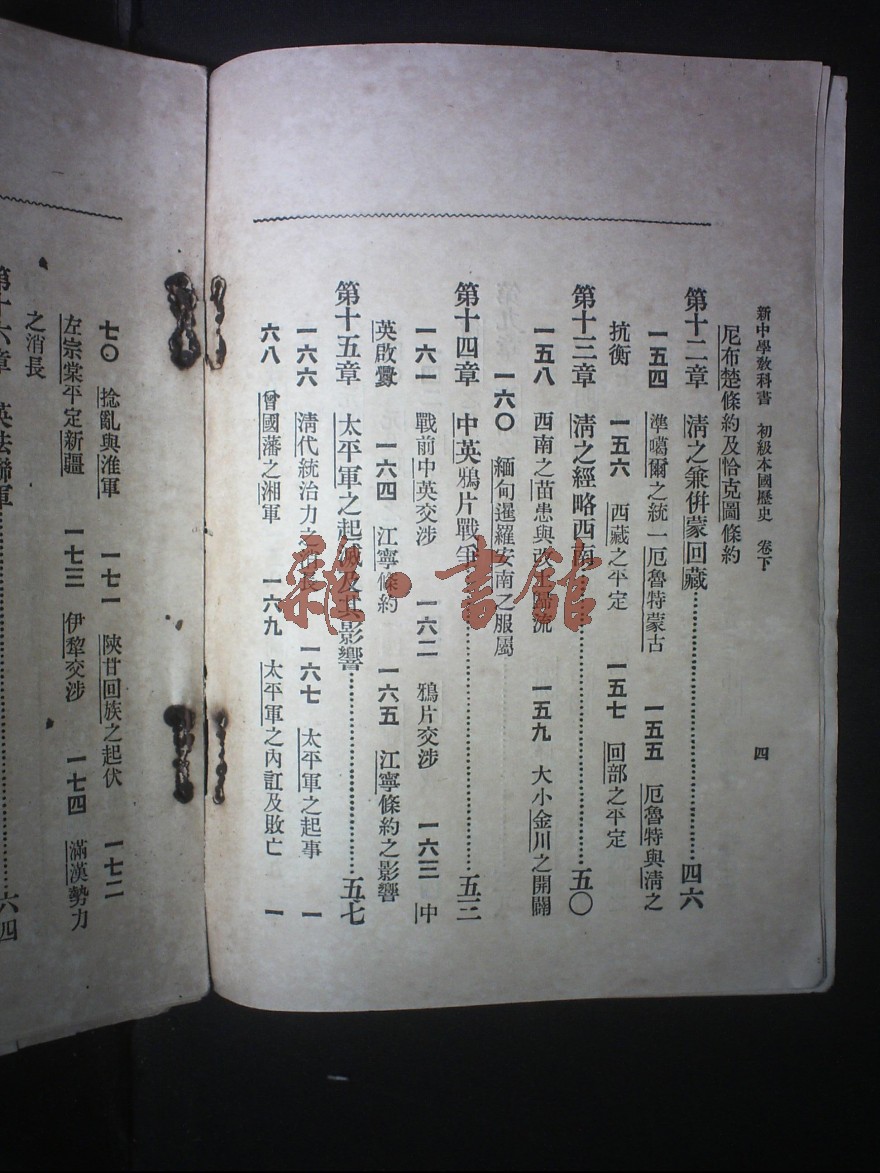 新中學教科書 初級本國歷史 卷下 四
尼布楚條約及恰克圖條約
第十二章 清之兼併蒙回藏⋯⋯⋯⋯⋯⋯⋯⋯四六
一五四 準噶爾之統一厄魯特蒙古 一五五 厄魯特與清之
抗衡 一五六 西藏之平定 一五七 回部之平定
第十三章 清之經略西南⋯⋯⋯⋯⋯⋯⋯⋯五〇
一五八 西南之苗患與改土歸流 一五九 大小金川之開闢
一六〇 緬甸暹羅安南之服屬
第十四章 中英鴉片戰爭⋯⋯⋯⋯⋯⋯⋯⋯五三
一六一 戰前中英交涉 一六二 鴉片交涉 一六三 中
英啟釁 一六四 江寧條約 一六五 江寧條約之影響
第十五章 太平軍之起滅及其影響⋯⋯⋯⋯⋯⋯五七
一六六 清代統治力之消長 一六七 太平軍之起事 一
六八 曾國藩之湘軍 一六九 太平軍之內訌及敗亡 一
七〇 捻亂與淮軍 一七一 陝甘回族之起伏 一七二
左宗棠平定新疆 一七三 伊犂交涉 一七四 滿漢勢力
之消長
第十六章 英法聯軍⋯⋯⋯⋯⋯⋯⋯⋯六四
雜·書館